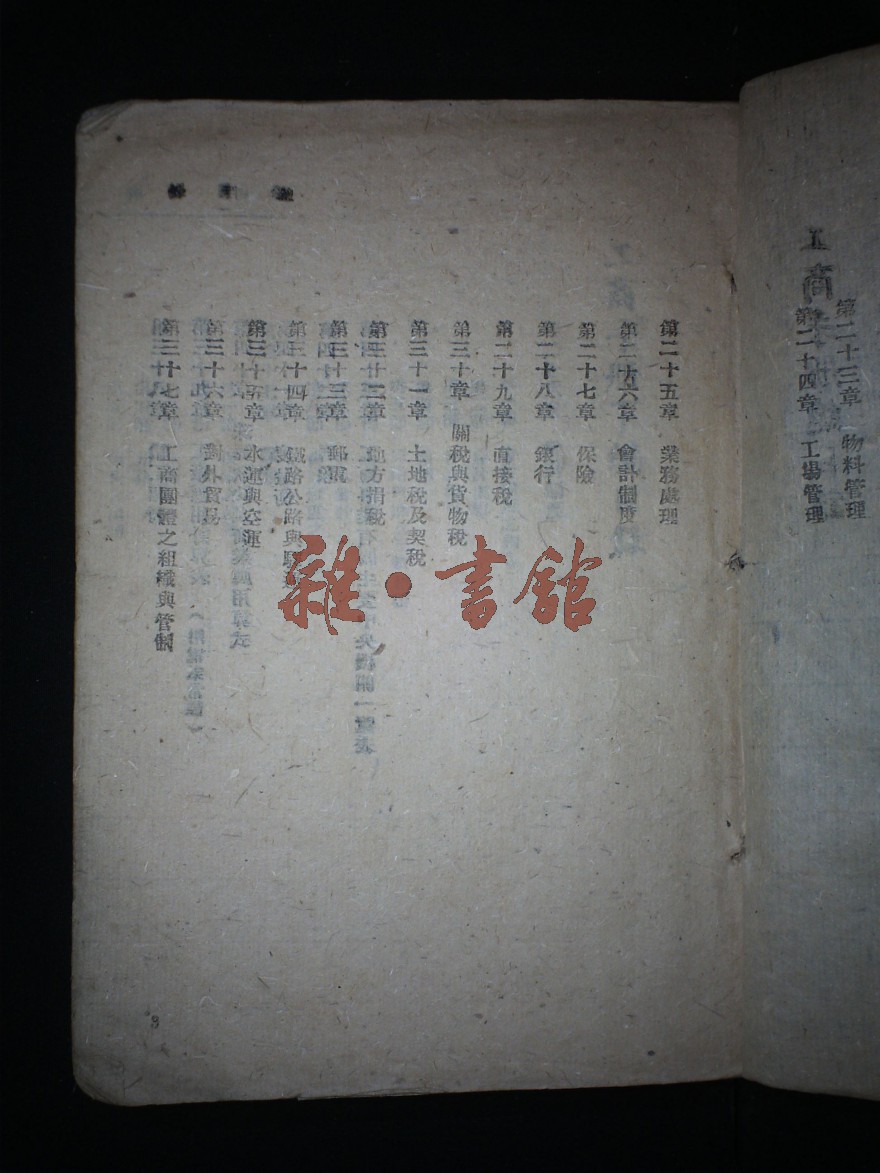 第二十三章　物料管理
第二十四章　工場管理
第二十五章　業務處理
第二十六章　會計制度
第二十七章　保險
第二十八章　銀行
第二十九章　直接稅
第三十章　關稅與貨物稅
第三十一章　土地稅及契稅
第三十二章　地方捐稅
第三十三章　郵電
第三十四章　鐵路公路與驛運
第三十五章　水運與空運
第三十六章　對外貿易
第三十七章　工商團體之組織與管制
雜·書館